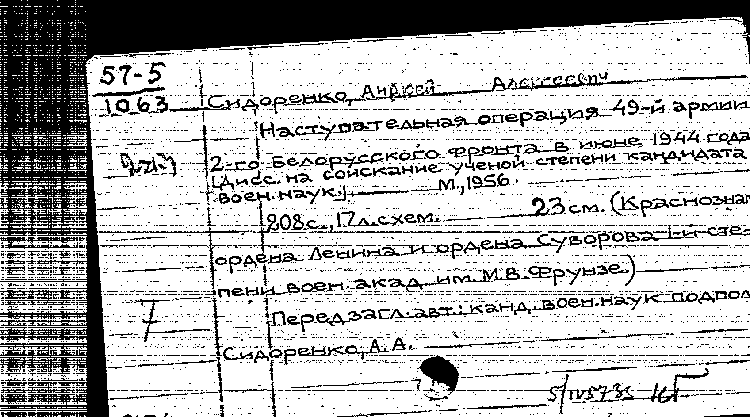 57-5
1063
Сидоренко, Андрей Алексеевич
Наступательная операция 49-й армии
2-го Белорусского фронта в июне 1944 года
[Дисс. на соискание ученой степени кандидата
воен. наук]. М., 1956.
208 с., 17 л. схем. 23 см. (Краснознам
ордена Ленина и ордена Суворова 1-й сте-
пени воен. акад. им. М.В. Фрунзе)
7
Перед загл. авт.: канд. воен. наук подпол
Сидоренко, А. А.